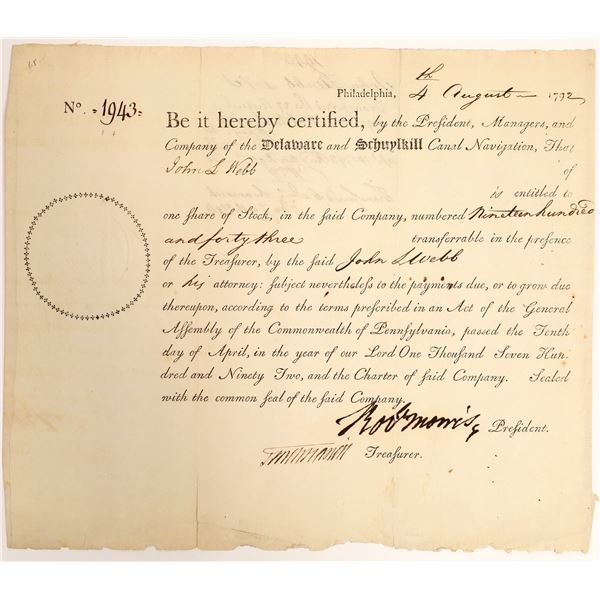 Philadelphia, 4th August 1792
No. 1943.
Be it hereby certified, by the Preſident, Managers, and
Company of the Delaware and Schuylkill Canal Navigation, That
John L Webb of
is entitled to
one ſhare of Stock, in the ſaid Company, numbered Nineteen hundred
and forty three transferrable in the preſence
of the Treaſurer, by the ſaid John L Webb
or his attorney: ſubject nevertheleſs to the payments due, or to grow due
thereupon, according to the terms preſcribed in an Act of the General
Aſſembly of the Commonwealth of Pennſylvania, paſſed the Tenth
day of April, in the year of our Lord One Thouſand Seven Hun-
dred and Ninety Two, and the Charter of ſaid Company. Sealed
with the common ſeal of the ſaid Company.
Robt Morris Preſident.
Treaſurer.